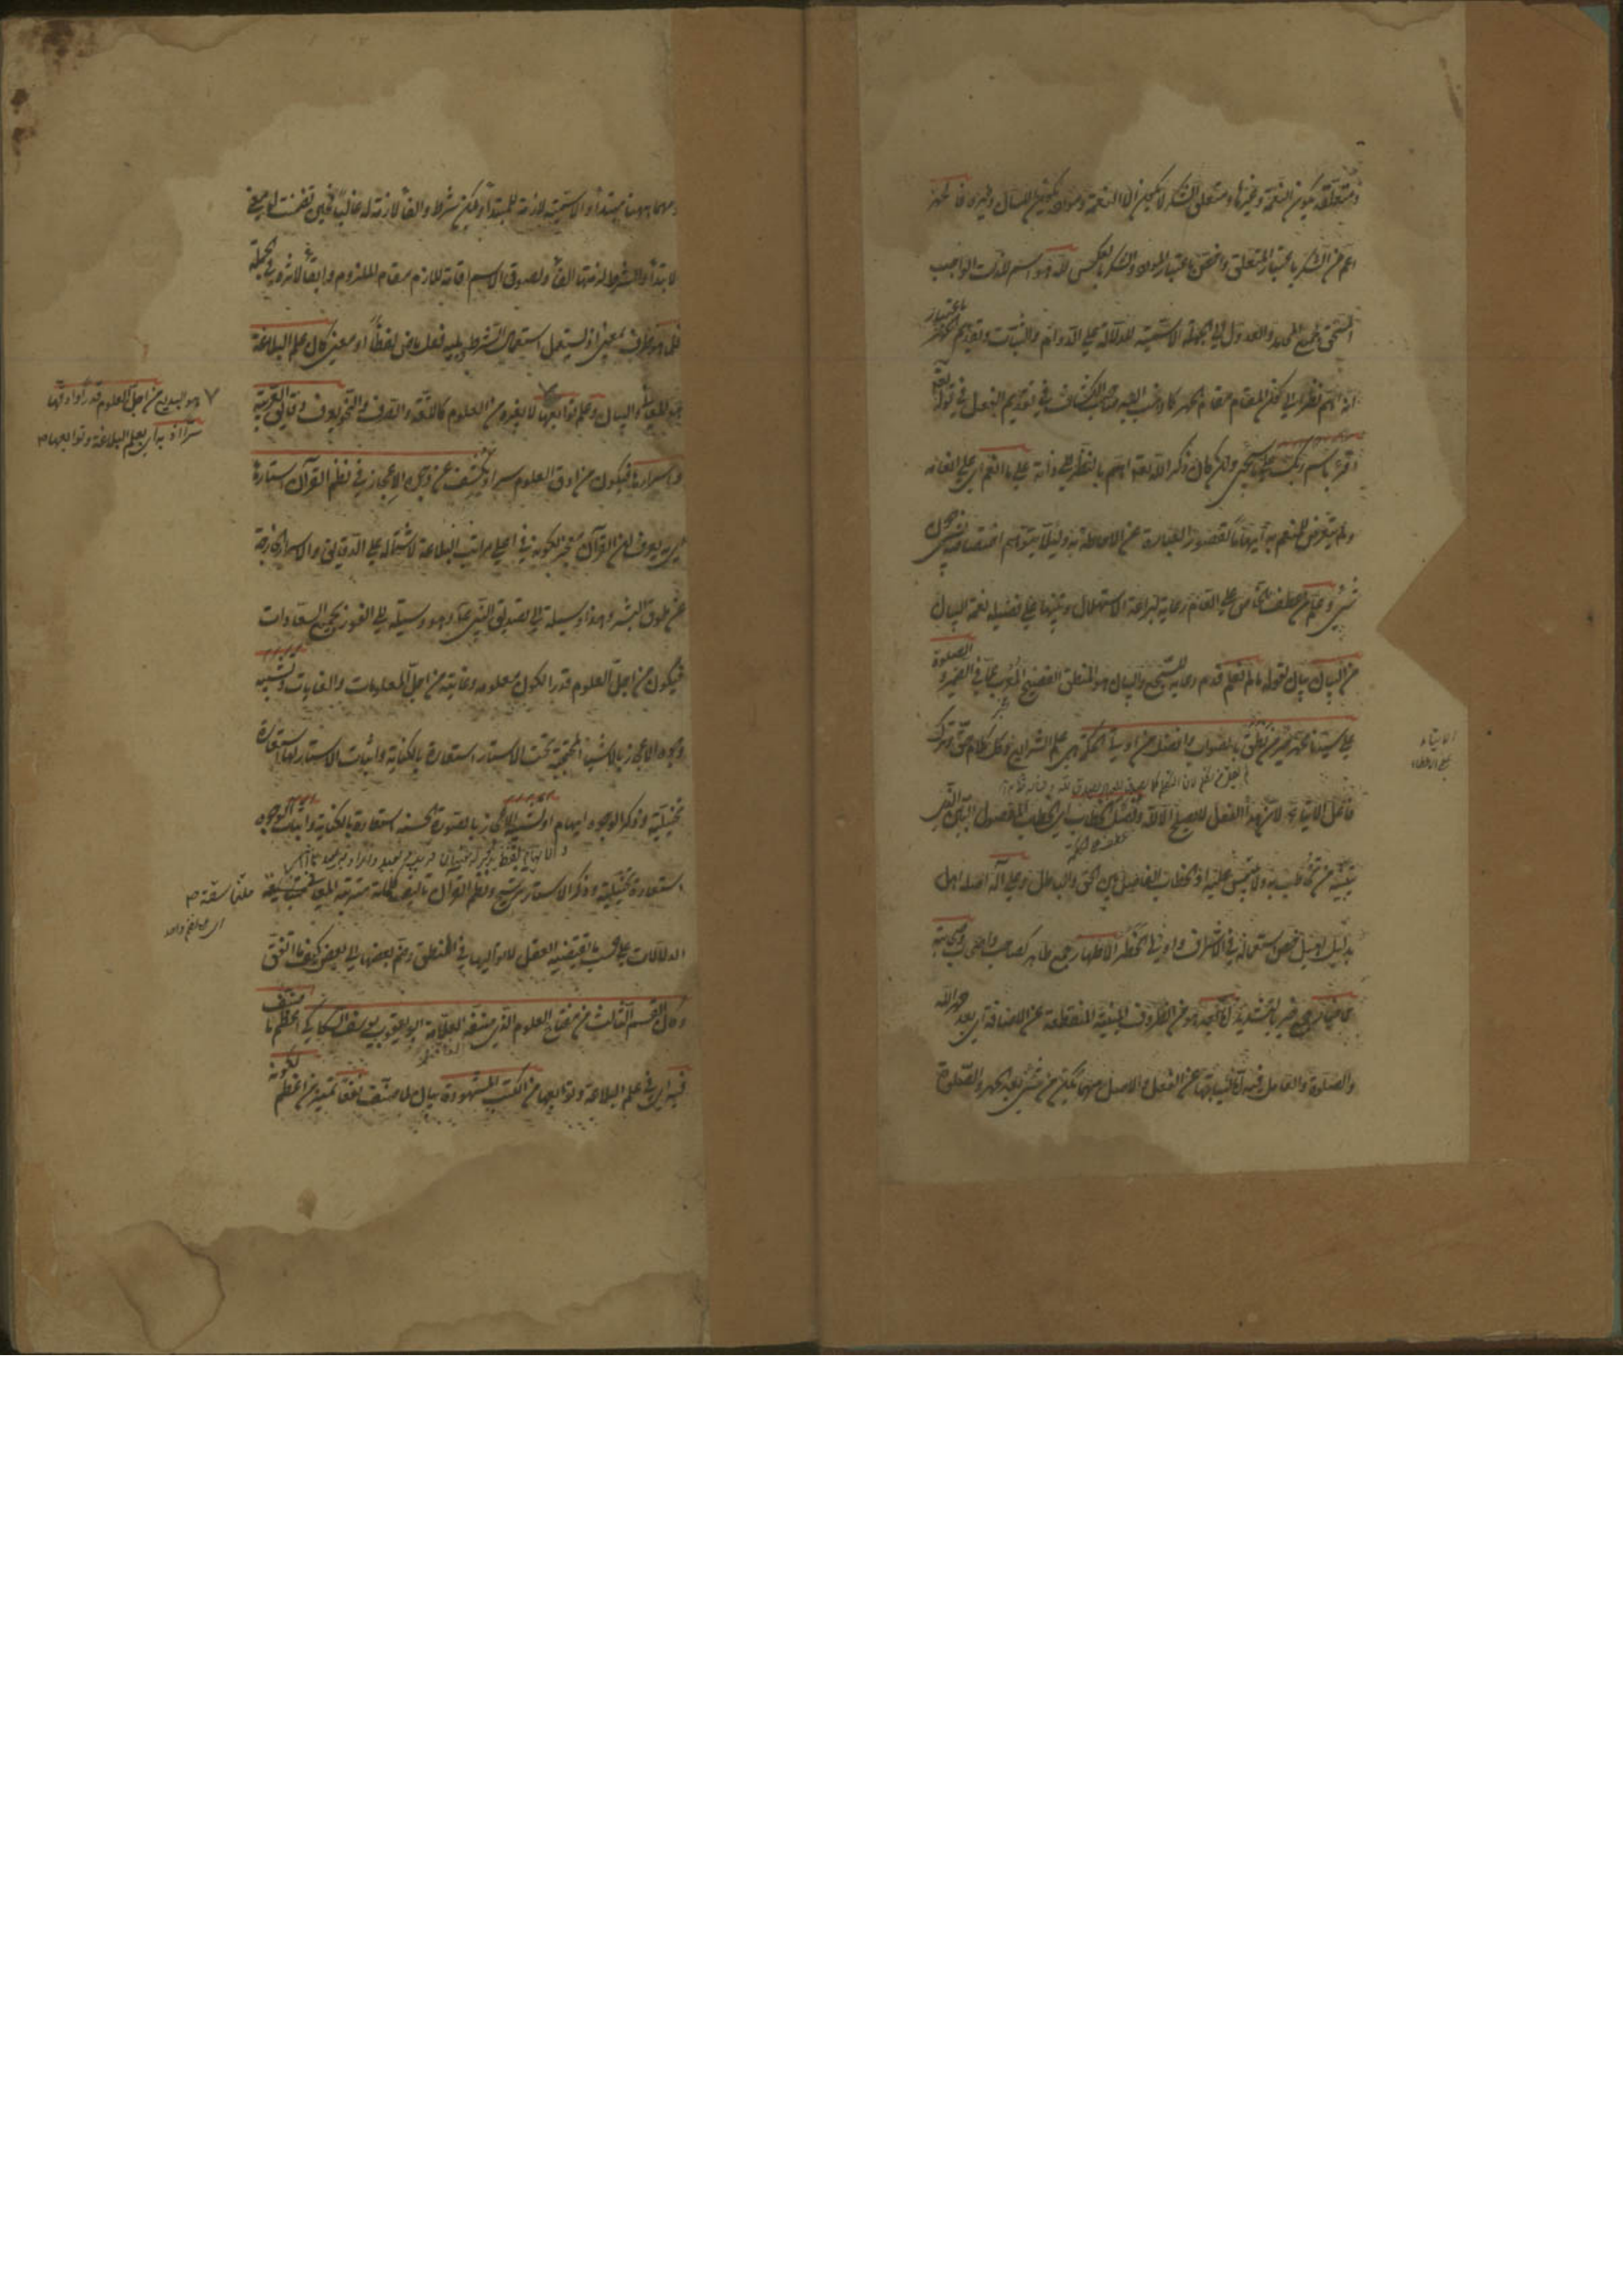 ومتعلقه يكون النعمة وغيرها ومتعلق الشكر لا يكون الا النعمة ومورده يكون اللسان وغيره فالحمد
اعم من الشكر باعتبار المتعلق واخص باعتبار المورد والشكر بالعكس لله هو اسم للذات الواجب
المستحق لجميع المحامد والعدول الى الجملة الاسمية للدلالة على الدوام والثبات وتقديم الحمد باعتبار
انه اهم نظرا الى كون المقام مقام الحمد كما ذهب اليه صاحب الكشاف في تقديم الفعل في قوله تعالى
اقرأ باسم ربك على ما سيجئ وان كان ذكر الله تعالى اهم بالنظر الى ذاته على ما انعم اي على انعامه
ولم يتعرض للمنعم به ايهاما لقصور العبارة عن الاحاطة به ولئلا يتوهم اختصاصه بشئ دون
شئ وعلم من عطف الخاص على العام رعاية لبراعة الاستهلال وتنبيها على فضيلة نعمة البيان
من البيان بيان لقوله ما لم نعلم قدم رعاية للسجع والبيان هو المنطق الفصيح المعرب عما في الضمير والصلوة
على سيدنا محمد خير من نطق بالصواب وافضل من اوتي الحكمة هي علم الشرايع وكل كلام وافق الحق وترك
فاعل الايتاء لان هذا الفعل لا يصلح الا لله وفصل الخطاب اي الخطاب المفصول البين الذي
يتبينه من يخاطب به ولا يلتبس عليه او الخطاب الفاصل بين الحق والباطل وعلى آله اصله اهل
بدليل اهيل خص استعماله في الاشراف واولي الخطر الاطهار جمع طاهر كصاحب واصحاب وصحابته
الاخيار جمع خير بالتشديد اما بعد هو من الظروف المبنية المنقطعة عن الاضافة اي بعد حمد الله
والصلوة والعامل فيه اما لنيابتها عن الفعل والاصل مهما يكن من شئ بعد الحمد والصلوة
الايتاء
ومهما ههنا مبتدأ والاسمية لازمة للمبتدأ ويكن شرط والفاء لازمة له غالبا فحين تضمنت اما معنى
الابتداء والشرط لزمتها الفاء ولصوق الاسم اقامة للازم مقام الملزوم وابقاء لاثره في الجملة
فلما هو ظرف بمعنى اذ يستعمل استعمال الشرط يليه فعل ماض لفظا او معنى كان علم البلاغة
هو المعاني والبيان وعلم توابعها لا بغيره من العلوم كاللغة والصرف والنحو يعرف دقايق العربية
واسرارها فيكون من ادق العلوم سرا ويكشف عن وجوه الاعجاز في نظم القرآن استارها
اي به يعرف ان القرآن معجز لكونه في اعلى مراتب البلاغة لاشتماله على الدقايق والاسرار الخارجة
عن طوق البشر وهذا وسيلة الى تصديق النبي عم وهو وسيلة الى الفوز بجميع السعادات
فيكون من اجل العلوم قدرا لكون معلومه وغايته من اجل المعلومات والغايات وتشبيه
وجوه الاعجاز بالاشياء المحتجبة تحت الاستار استعارة بالكناية واثبات الاستار لها استعارة
تخييلية وذكر الوجوه ايهام او تشبيه الاعجاز بالصورة الحسنة استعارة بالكناية واثبات الوجوه
استعارة تخييلية وذكر الاستار ترشيح ونظم القرآن تأليف كلماته مترتبة المعاني متناسقة
الدلالات على حسب ما يقتضيه العقل لا تواليها في النطق وضم بعضها الى بعض كيف ما اتفق
وكان القسم الثالث من مفتاح العلوم الذي صنفه العلامة ابو يعقوب يوسف السكاكي اعظم ما صنف
فيه اي في علم البلاغة وتوابعها من الكتب المشهورة بيان لما صنف نفعا تمييز من اعظم لكونه
وهو البديع من اجل العلوم قدرا وادقها
سرا اذ به اي بعلم البلاغة وتوابعها